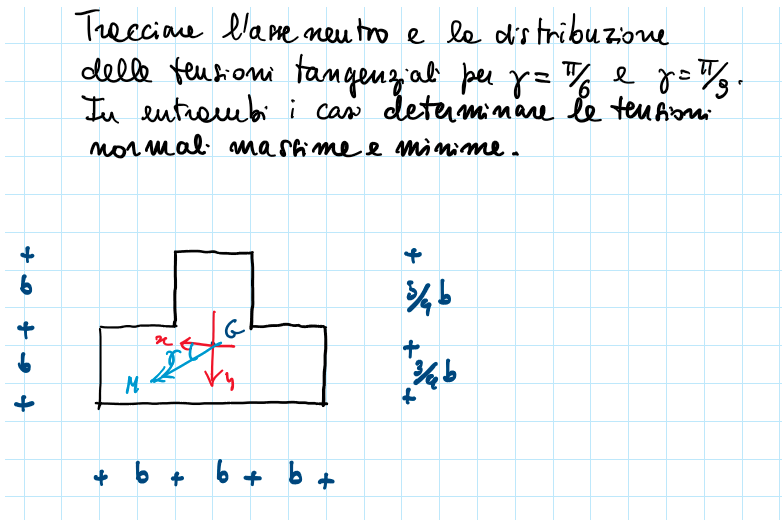 Tracciare l'asse neutro e la distribuzione
delle tensioni tangenziali per γ = π/6 e γ = π/3.
In entrambi i casi determinare le tensioni
normali massime e minime.
+ +
b 5/4 b
+ x G +
b γ 3/4 b
M y
+ +
+ b + b + b +